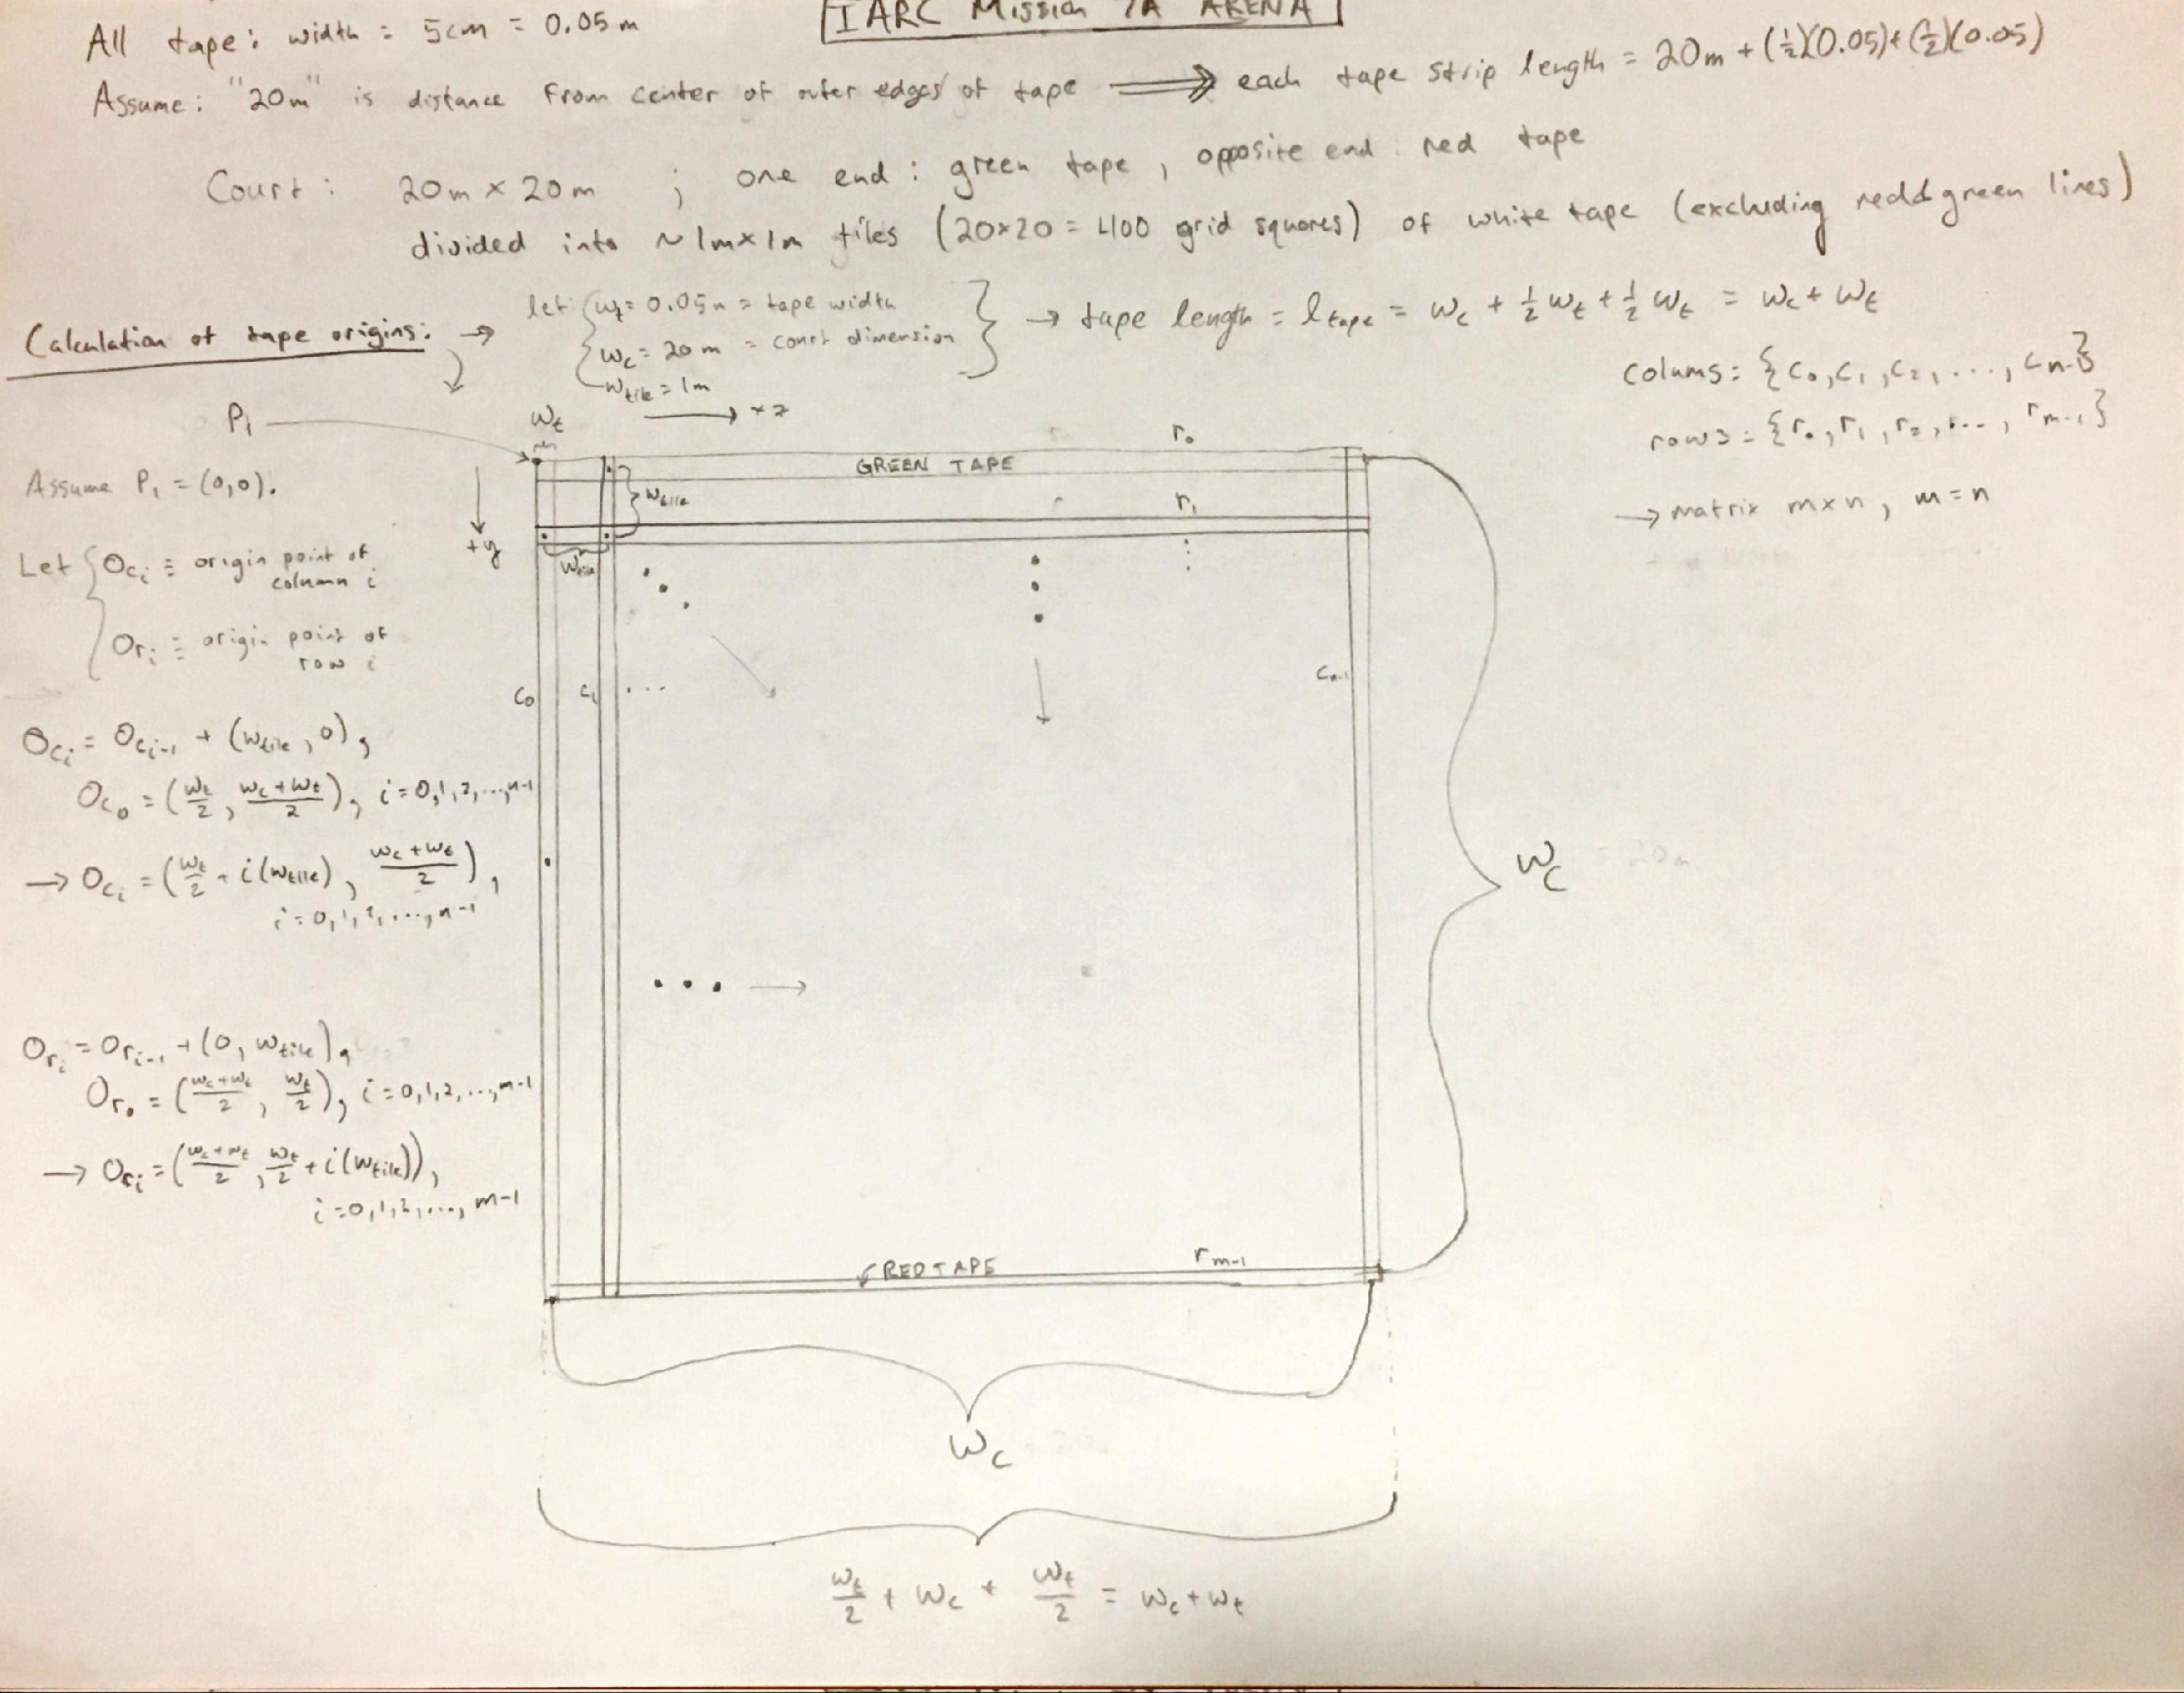 IARC Mission 7A ARENA
All tape: width = 5cm = 0.05m
Assume: "20m" is distance from center of outer edges of tape ⟹ each tape strip length = 20m + (½)(0.05) + (½)(0.05)
Court: 20m × 20m ; one end: green tape, opposite end: red tape
divided into ~1m×1m tiles (20×20 = 400 grid squares) of white tape (excluding red & green lines)
Calculation of tape origins: →
let { w_t = 0.05m = tape width
w_c = 20m = court dimension
w_tile = 1m
} → tape length = l_tape = w_c + ½ w_t + ½ w_t = w_c + w_t
colums = {c₀, c₁, c₂, ..., c_n-1}
rows = {r₀, r₁, r₂, ..., r_m-1}
→ matrix m×n, m=n
P₁
w_t
+x
r₀
GREEN TAPE
Assume P₁ = (0,0).
+y
w_tile
r₁
w_tile
Let { O_ci ≡ origin point of
column i
O_ri ≡ origin point of
row i
c₀
c₁ ...
c_n-1
O_ci = O_ci-1 + (w_tile, 0),
O_c0 = (w_t/2, (w_c + w_t)/2), i = 0,1,2,...,n-1
→ O_ci = (w_t/2 + i(w_tile), (w_c + w_t)/2),
i = 0,1,2,...,n-1
w_c = 20m
O_ri = O_ri-1 + (0, w_tile),
O_r0 = ((w_c + w_t)/2, w_t/2), i = 0,1,2,...,m-1
→ O_ri = ((w_c + w_t)/2, w_t/2 + i(w_tile)),
i = 0,1,2,...,m-1
RED TAPE
r_m-1
w_c
w_t/2 + w_c + w_t/2 = w_c + w_t